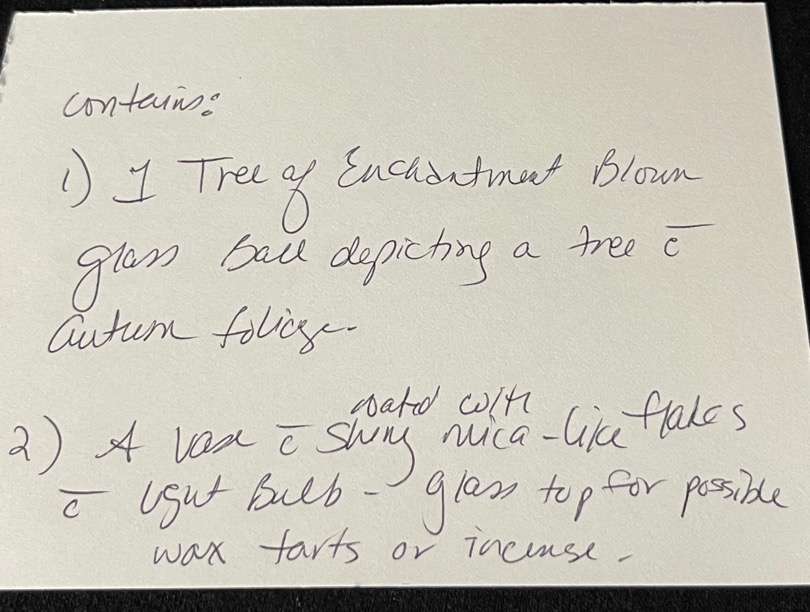 contains:
1) 1 Tree of Enchantment Blown
glass Ball depicting a tree c̄
Autum foliage.
coated with
2) A vase c̄ Shiny mica-like flakes
c̄ Light Bulb - glass top for possible
wax tarts or incense.